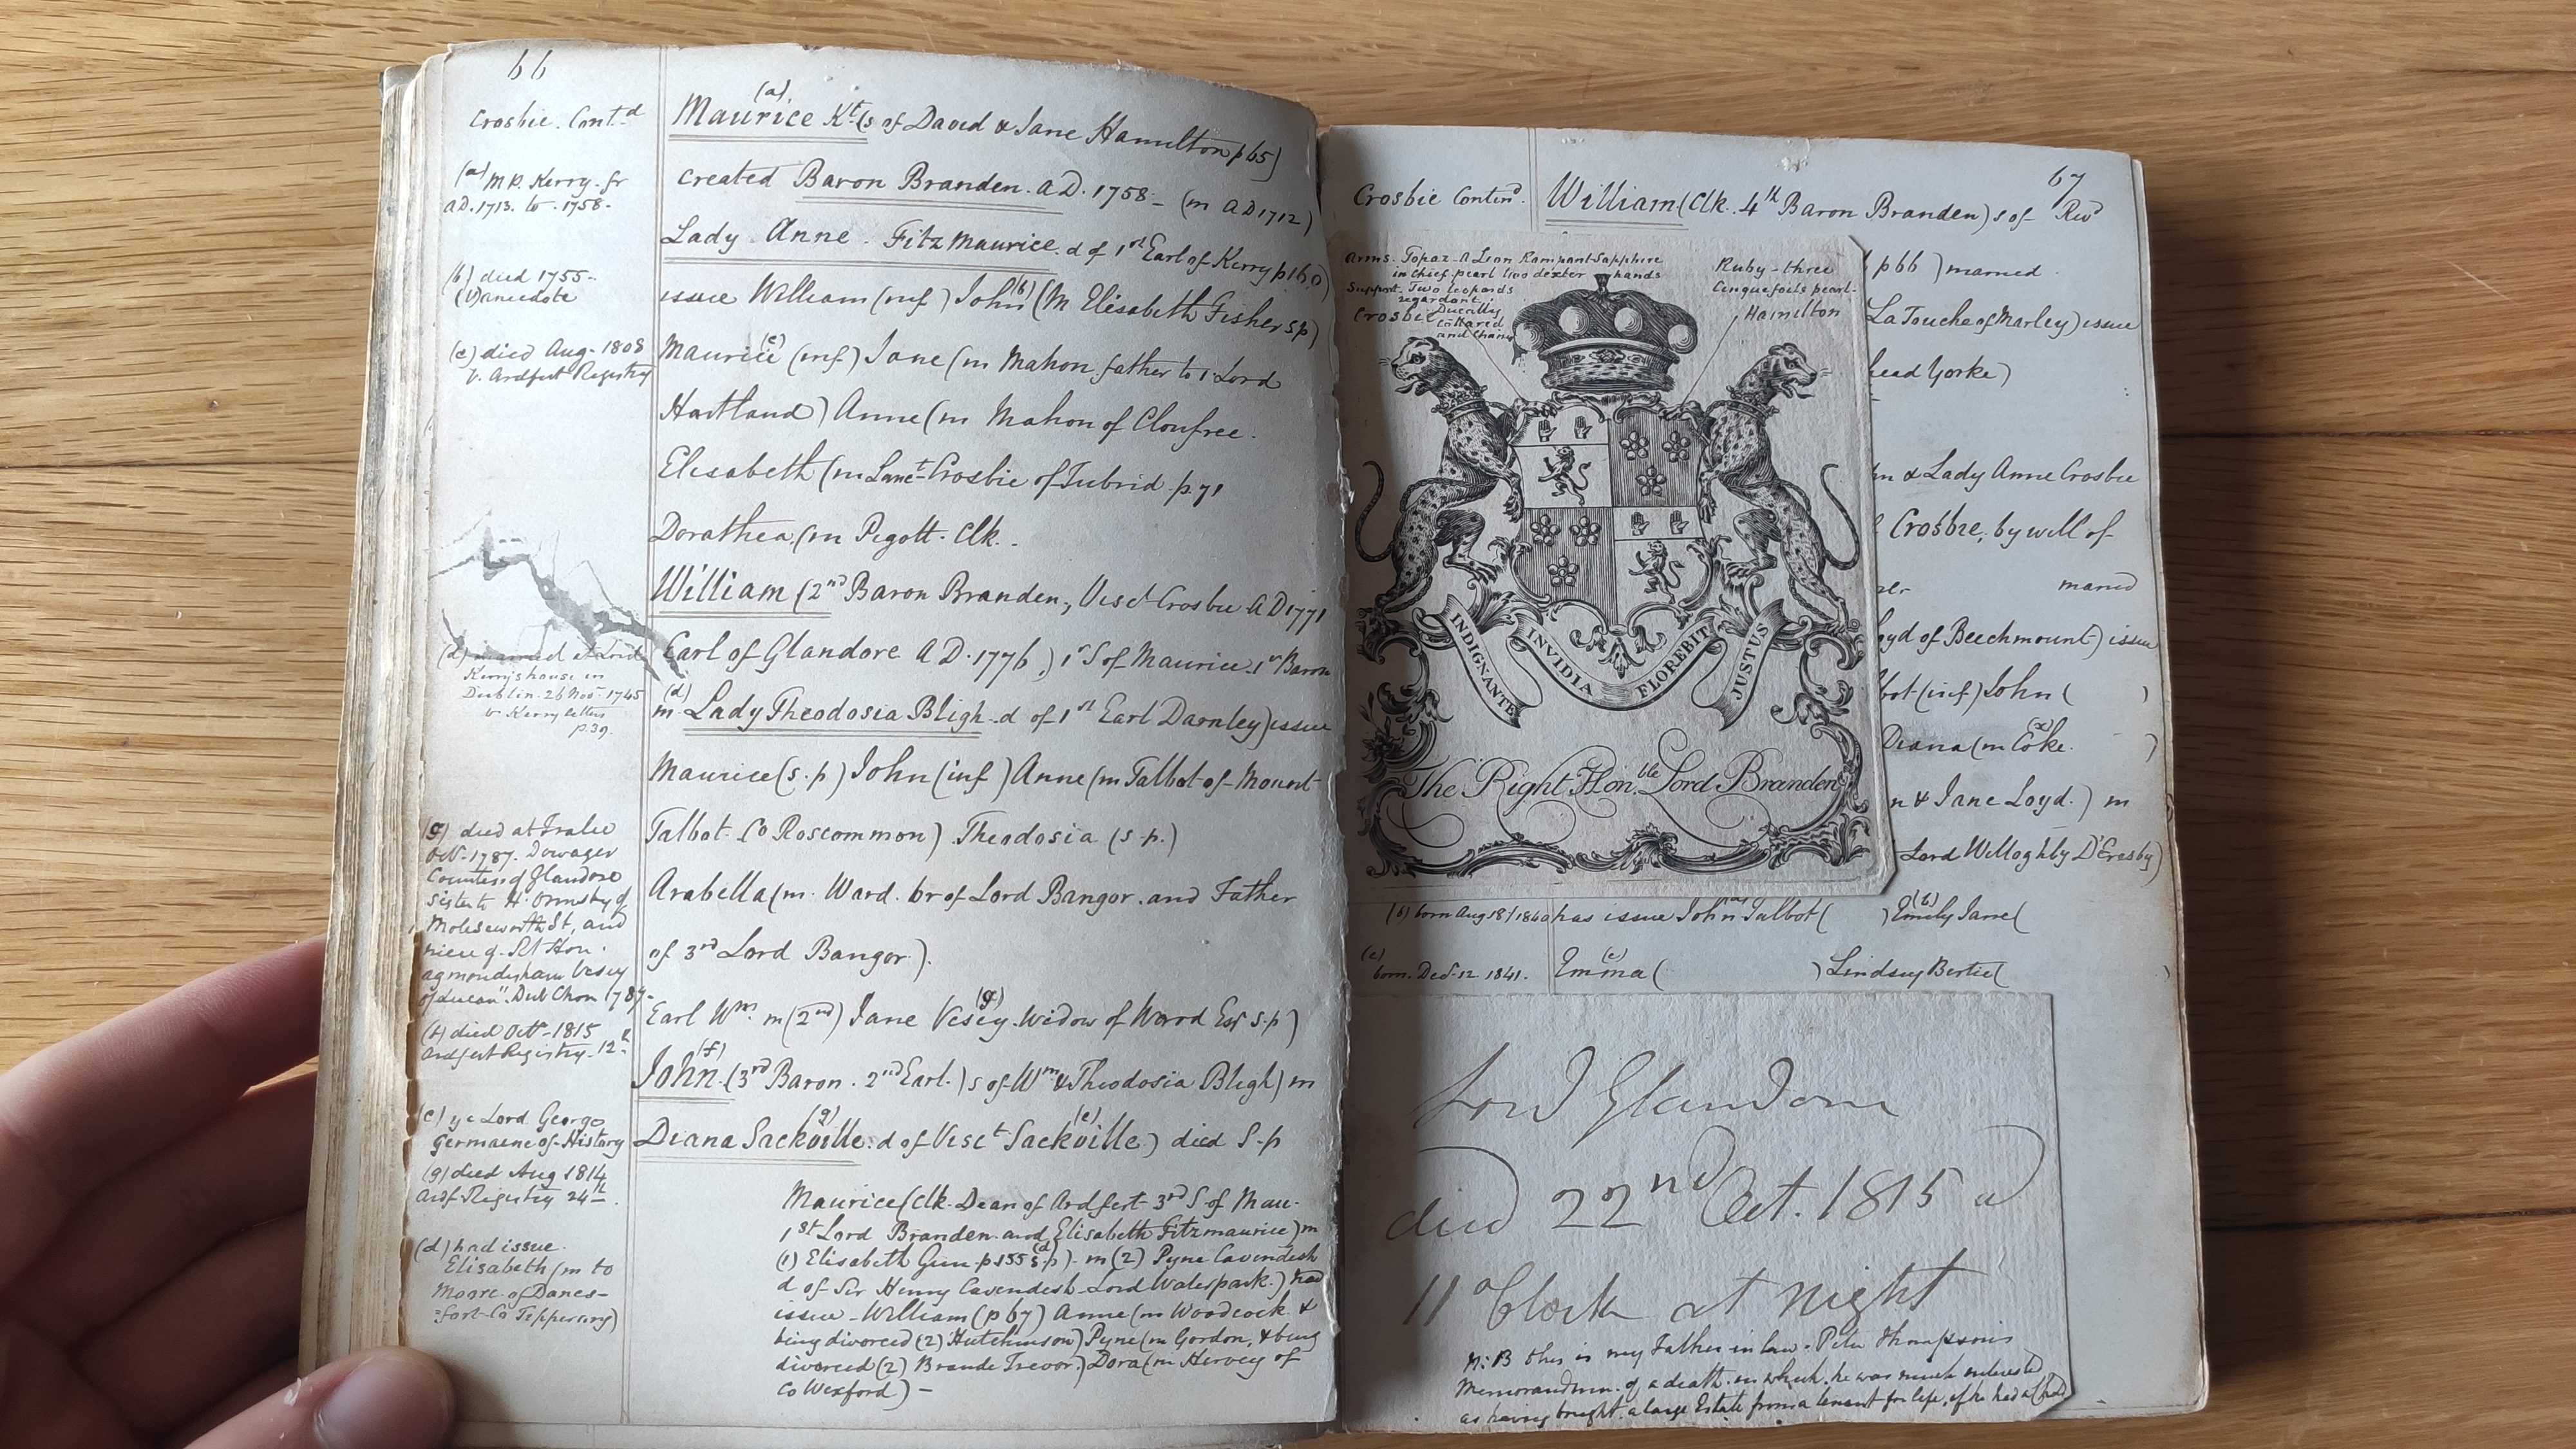 66
Crosbie. Contd
(a) M.P. Kerry. fr
A.D. 1713. to. 1758.
(b) died 1755.
(v) anecdote
(c) died Aug. 1808
v. Ardfert Registry
(d) married at Lord
Kerry's house in
Dublin. 26 Novr. 1745
v. Kerry letters
p. 39.
(g) died at Tralee
Octr. 1787. Dowager
Countess of Glandore
sister to H. Ormsby of
Molesworth St, and
niece of Rt Hon.
Agmondisham Vesey
of Lucan". Dub Chon 1787.
(f) died Octr. 1815
Ardfert Registry. 12th
(e) ye Lord George
Germaene of History
(g) died Aug 1814
Ardf. Registry 24th.
(d) had issue.
Elisabeth (m to
Moore of Danes-
=fort Co Tipperary)
(a)
Maurice Kt. (s of David & Jane Hamilton p 65)
created Baron Branden. A.D. 1758 - (m AD 1712)
Lady Anne. Fitzmaurice. d of 1st Earl of Kerry p 160)
issue William (inf) John (b) (m Elisabeth Fisher sp)
Maurice (c) (inf) Jane (m Mahon father to 1 Lord
Hartland) Anne (m Mahon of Clonfree.
Elisabeth (m Lanct Crosbie of Tubrid. p. 71
Dorathea. (m Pigott. Clk..
William (2nd Baron Branden, Visct Crosbie A D 1771
Earl of Glandore A.D. 1776) 1st S of Maurice 1st Baron
(d)
m. Lady Theodosia Bligh. d of 1st Earl Darnley) issue
Maurice (s.p) John (inf) Anne (m Talbot of Mount
Talbot Co Roscommon) Theodosia (s.p.)
Arabella (m. Ward. br of Lord Bangor. and Father
of 3rd Lord Bangor).
Earl Wm. m (2nd) Jane Vesey (g). Widow of Ward Esq s.p)
(f)
John. (3rd Baron. 2nd Earl.) s of Wm & Theodosia Bligh) m
(g) (e)
Diana Sackville. d of Visct Sackville) died S.p
Maurice (Clk. Dean of Ardfert. 3rd S of Mau-
1st Lord Branden and Elisabeth Fitzmaurice) m
(1) Elisabeth Gun p 155 (d) s.p). m (2) Pyne Cavendesh
d of Sir Henry Cavendesh. Lord Waterpark.) had
issue - William (p 67) Anne (m Woodcock &
being divorced (2) Hutchinson) Pyne (m Gordon, & being
divorced (2) Brande Trevor.) Dora (m Hervey of
Co Wexford) -
67
Crosbie Contind. William (Clk. 4th Baron Branden) s of Revd
p 66) married.
La Touche of Marley) issue
head Yorke)
& Lady Anne Crosbie
Crosbie, by will of
married
oyd of Beechmount) issue
bot (inf) John ( )
Diana (m Coke. (x) )
n & Jane Loyd.) m
Lord Willoghby D'Eresby)
Arms. Topaz. A Lion Rampant Sapphire
in Chief pearl two dexter hands
Support. Two leopards
regardant,
Ducally
Collared
and Chaind
Crosbie
Ruby - three
Cinquefoils pearl.
Hamilton
INDIGNANTE INVIDIA FLOREBIT JUSTUS
The Right Honble. Lord Branden
(b) born Aug 18/1840 has issue John (a) Talbot ( ) Emily (b) Jane (
(c) born. Decr. 12. 1841. Emma (c) ( ) Lindsey Bertie ( )
Lord Glandore
died 22nd Oct. 1815 at
11 o'Clock at night
N:B this is my Father in law. Peter Thompson's
Memorandum. of a death in which. he was much interested
as having bought. a large Estate from a tenant for life, if he had a